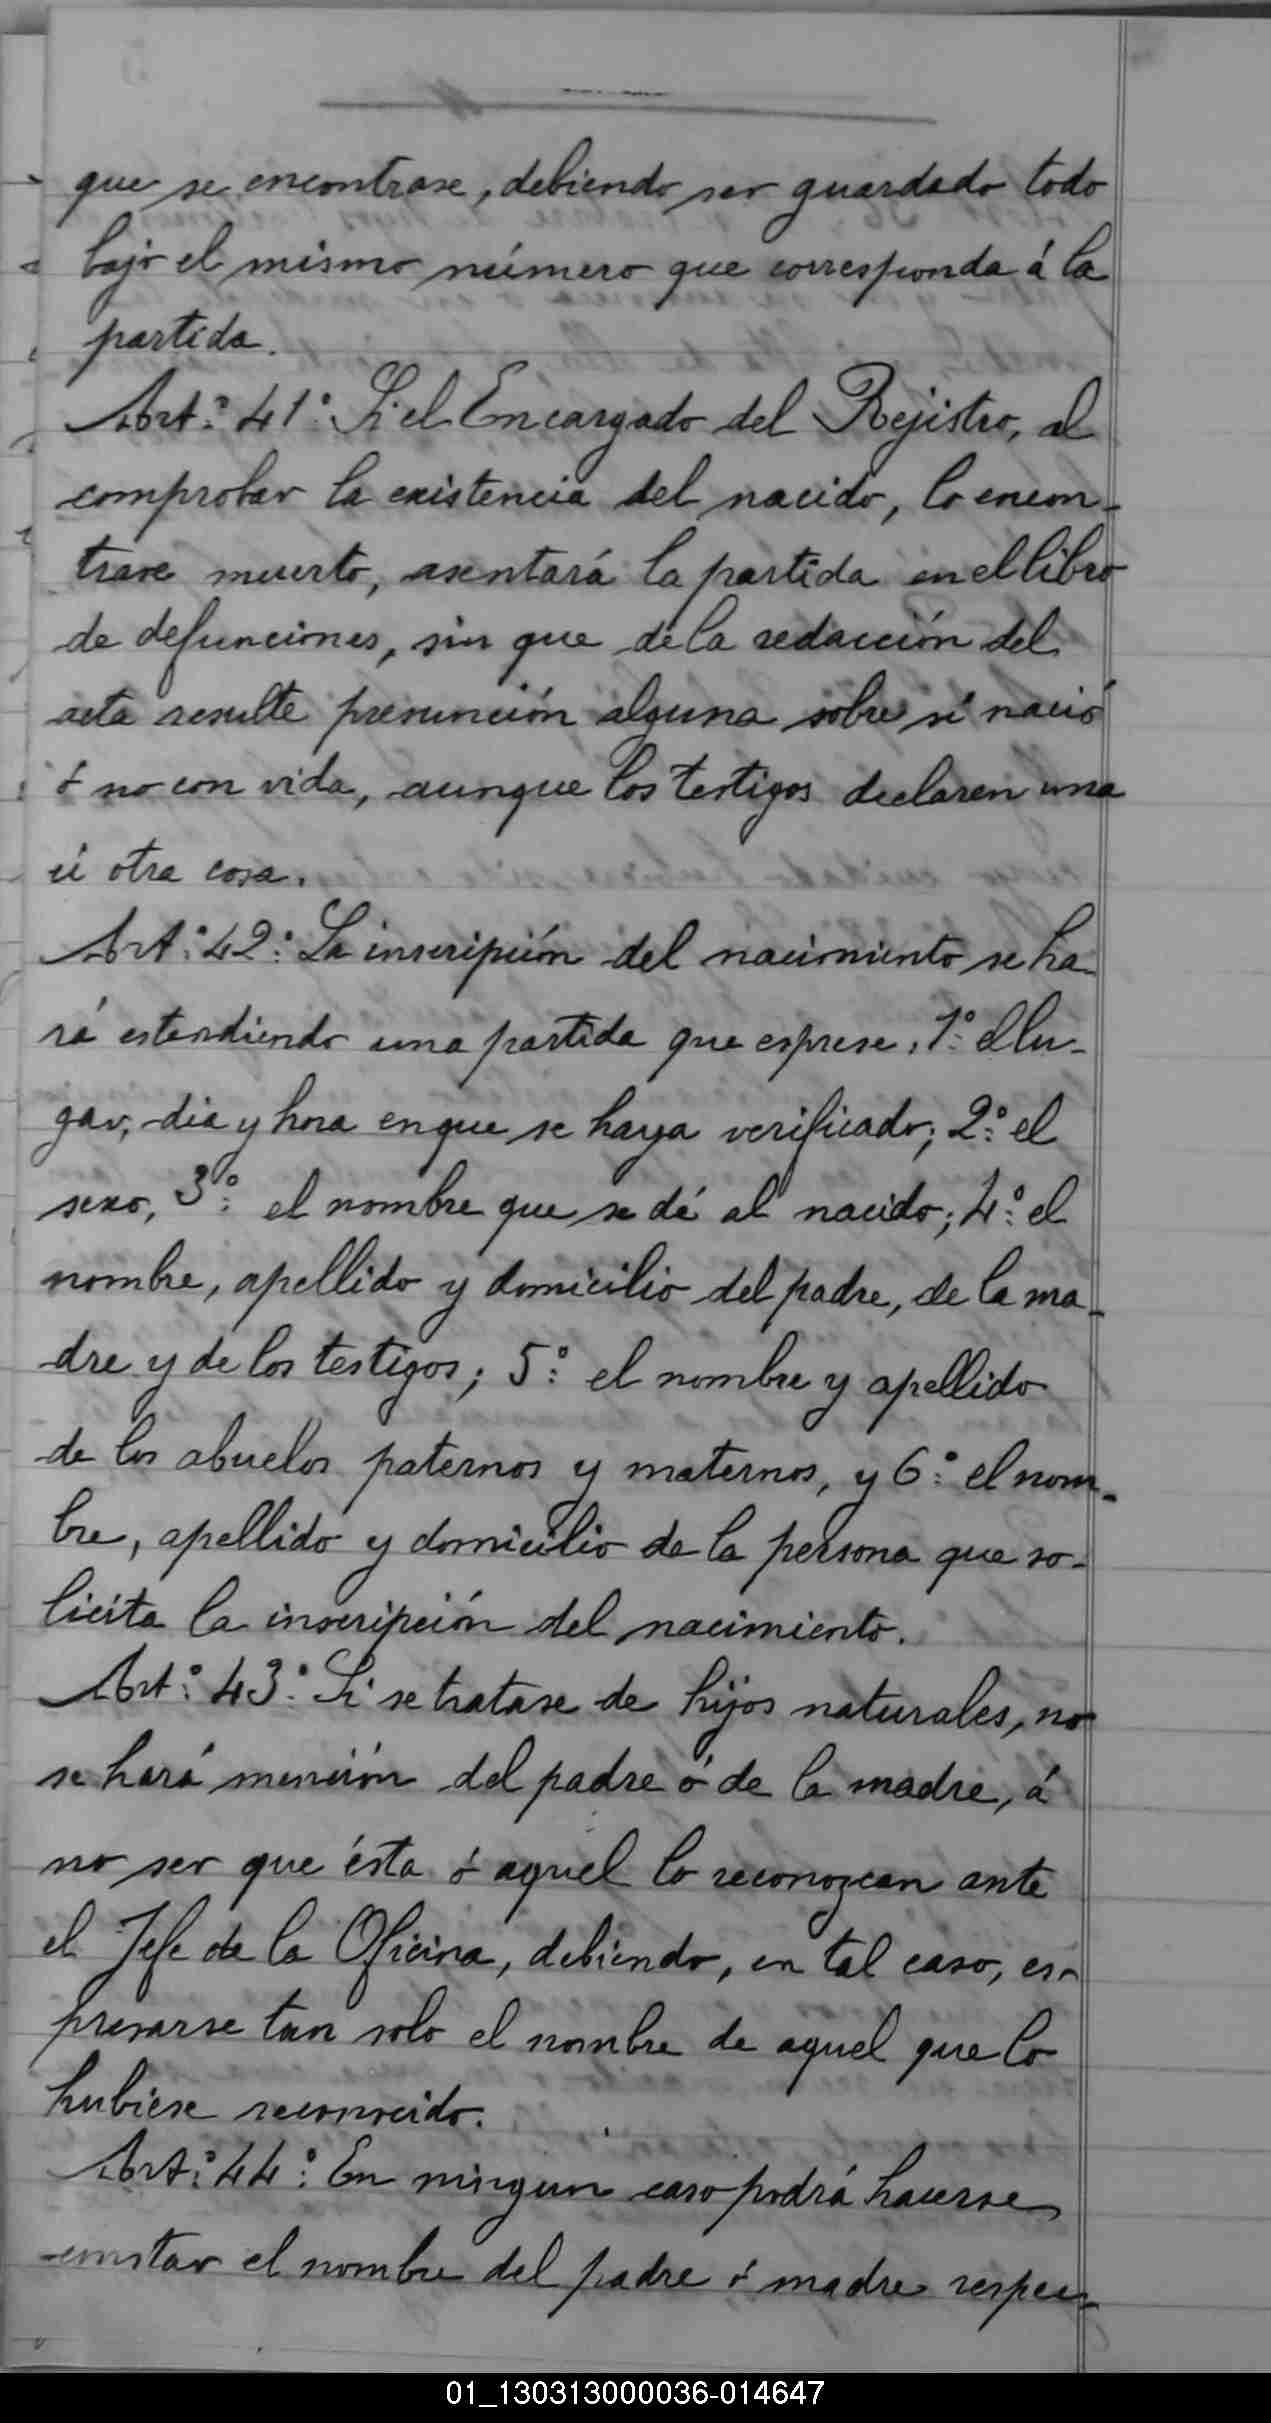 que se encontrase, debiendo ser guardado todo
bajo el mismo número que corresponda á la
partida.
Art.º 41º Si el Encargado del Rejistro, al
comprobar la existencia del nacido, lo encon-
trare muerto, asentará la partida en el libro
de defunciones, sin que de la redacción del
acta resulte presunción alguna sobre si nació
ó no con vida, aunque los testigos declaren una
ú otra cosa.
Art.º 42º La inscripción del nacimiento se ha-
rá estendiendo una partida que esprese, 1º el lu-
gar, dia y hora en que se haya verificado; 2º el
sexo, 3º el nombre que se dé al nacido; 4º el
nombre, apellido y domicilio del padre, de la ma-
dre y de los testigos; 5º el nombre y apellido
de los abuelos paternos y maternos, y 6º el nom-
bre, apellido y domicilio de la persona que so-
licita la inscripción del nacimiento.
Art.º 43º Si se tratase de hijos naturales, no
se hará mención del padre ó de la madre, á
no ser que ésta ó aquel lo reconozcan ante
el Jefe de la Oficina, debiendo, en tal caso, es-
presarse tan solo el nombre de aquel que lo
hubiese reconocido.
Art.º 44º En ningun caso podrá hacerse
constar el nombre del padre ó madre respec-
01_130313000036-014647